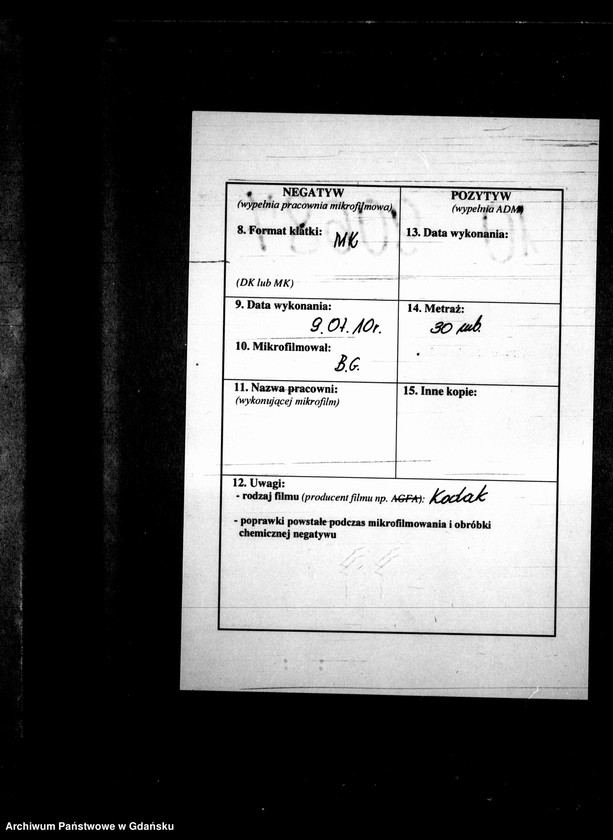 NEGATYW
(wypełnia pracownia mikrofilmowa)
8. Format klatki: MK
(DK lub MK)
9. Data wykonania:
9.07.10r.
10. Mikrofilmował:
B.G.
11. Nazwa pracowni:
(wykonującej mikrofilm)
POZYTYW
(wypełnia ADM)
13. Data wykonania:
14. Metraż:
30 mb.
15. Inne kopie:
12. Uwagi:
- rodzaj filmu (producent filmu np. AGFA): Kodak
- poprawki powstałe podczas mikrofilmowania i obróbki
chemicznej negatywu
Archiwum Państwowe w Gdańsku